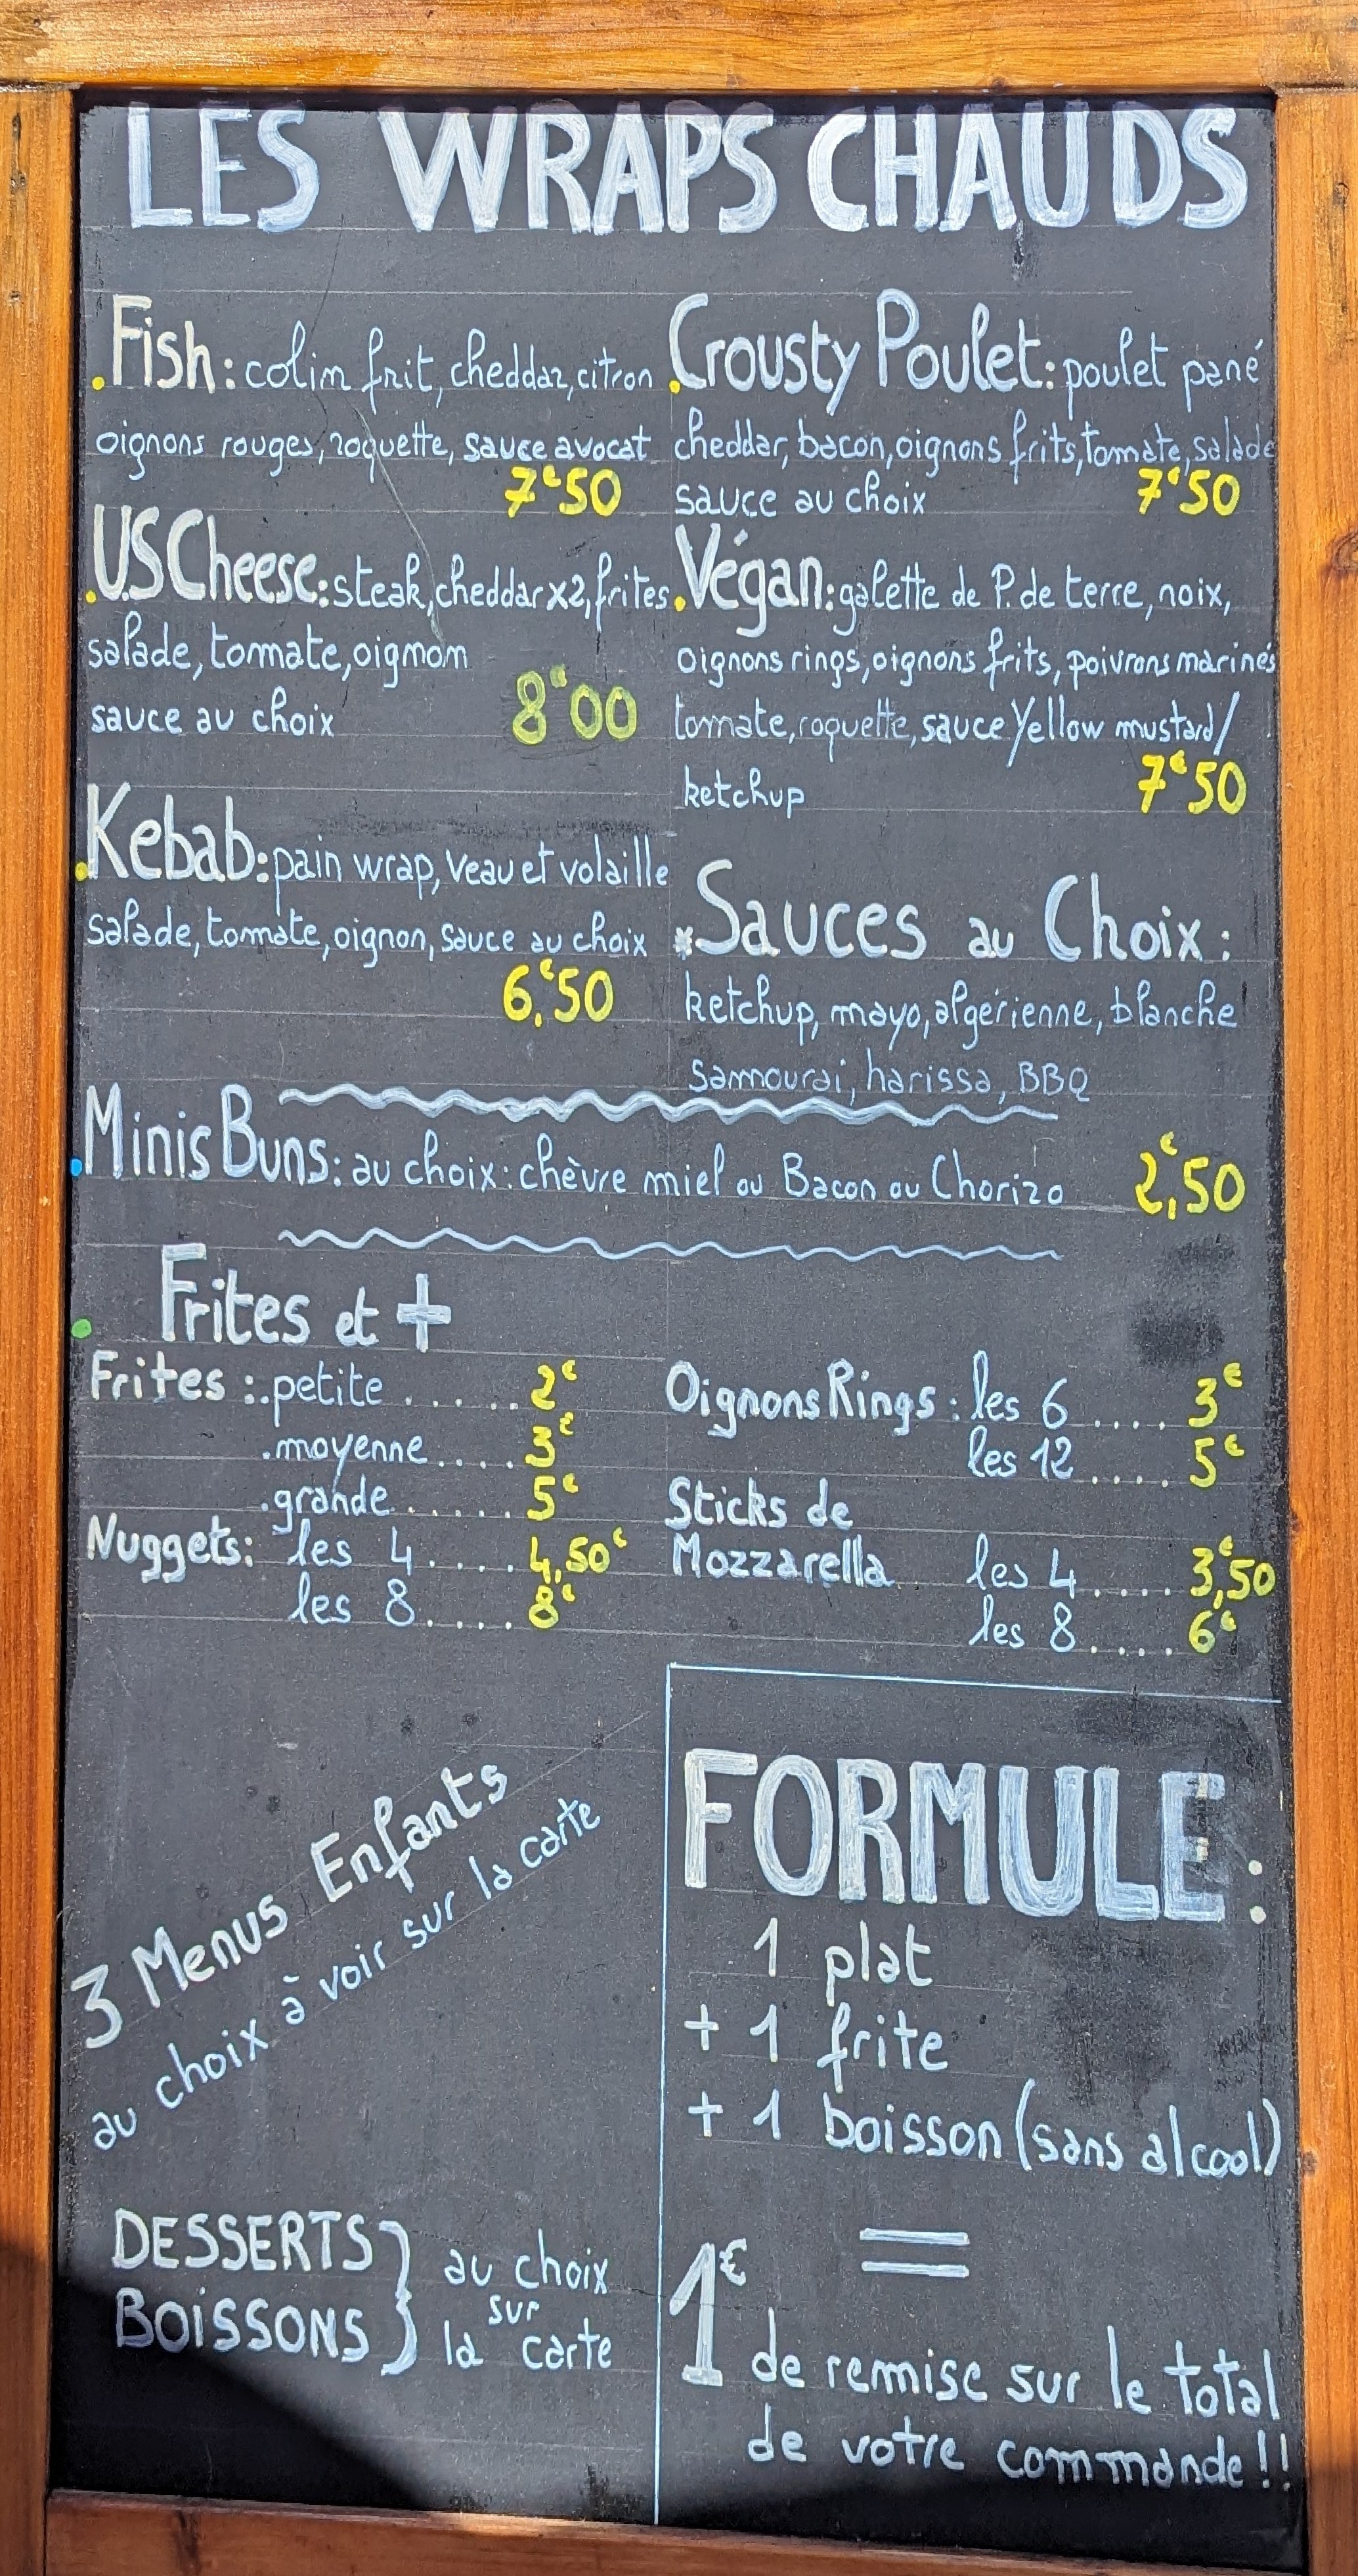 LES WRAPS CHAUDS
.Fish: colin frit, cheddar, citron
oignons rouges, roquette, sauce avocat
7€50
.US Cheese: steak, cheddar x2, frites
salade, tomate, oignon
sauce au choix 8€00
.Kebab: pain wrap, veau et volaille
salade, tomate, oignon, sauce au choix
6,€50
.Crousty Poulet: poulet pané
cheddar, bacon, oignons frits, tomate, salade
sauce au choix 7€50
.Végan: galette de P. de terre, noix,
oignons rings, oignons frits, poivrons marinés
tomate, roquette, sauce Yellow mustard/
ketchup 7€50
*Sauces au Choix:
ketchup, mayo, algérienne, blanche
Samourai, harissa, BBQ
.Minis Buns: au choix: chèvre miel ou Bacon ou Chorizo 2,€50
. Frites et +
Frites : .petite ...... 2€
.moyenne .... 3€
.grande ...... 5€
Nuggets: les 4 ..... 4,50€
les 8 ..... 8€
Oignons Rings : les 6 .... 3€
les 12 ..... 5€
Sticks de
Mozzarella les 4 .... 3,€50
les 8 ..... 6€
3 Menus Enfants
au choix à voir sur la carte
DESSERTS
BOISSONS } au choix
sur
la carte
FORMULE:
1 plat
+ 1 frite
+ 1 boisson (sans alcool)
=
1€ de remise sur le total
de votre commande!!